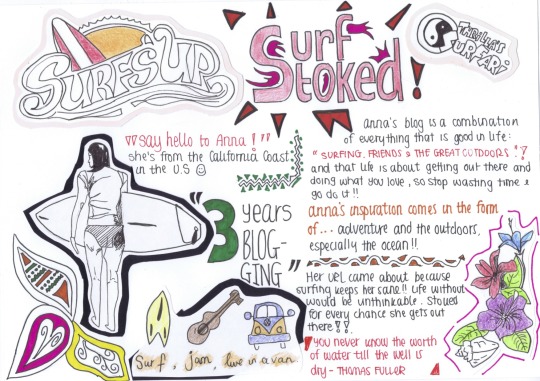 SURF'S UP
Surf
Stoked!
THRILLER'S
SURFARI
"say hello to Anna!"
she's from the California Coast
in the U.S ☺
anna's blog is a combination
of everything that is good in life:
"SURFING, FRIENDS & THE GREAT OUTDOORS"!
and that life is about getting out there and
doing what you love, so stop wasting time &
go do it!!
3 years
BLOG-
GING"
anna's inspiration comes in the form
of... adventure and the outdoors,
especially the ocean!!
Her URL came about because
surfing keeps her sane!! Life without
would be unthinkable. Stoked
for every chance she gets out
there!!
"you never know the worth
of water till the well is
dry - THOMAS FULLER
Surf, jam, live in a van